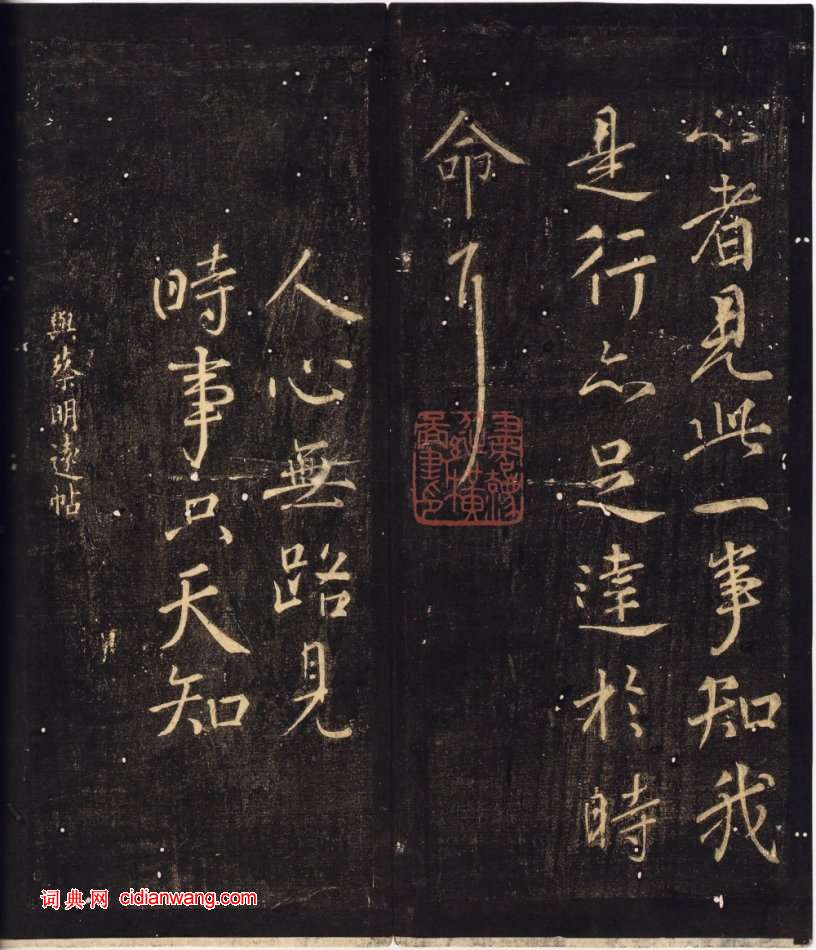 心者見此一事知我
是行亦足達於時
命耳
人心無路見
時事只天知
與蔡明遠帖
词典网 cidianwang.com